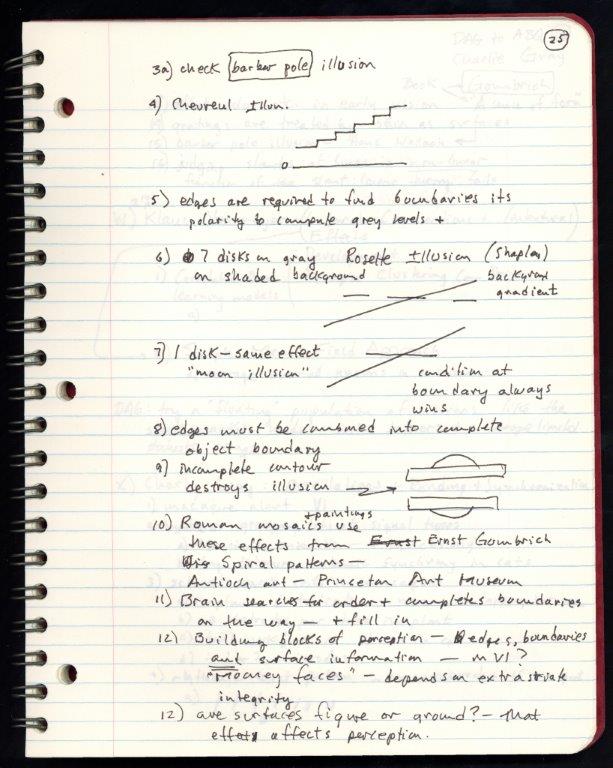 25
3a) check barber pole illusion
4) Chevreul Illun.
0
5) edges are required to find boundaries its
polarity to compute grey levels +
6) 7 disks on gray Rosette Illusion (Shapley)
on shaded background
background
gradient
7) 1 disk - same effect
"moon illusion"
condition at
boundary always
wins
8) edges must be combined into complete
object boundary
9) incomplete contour
destroys illusion
+ paintings
10) Roman mosaics use
these effects from Ernst Ernst Gombrich
Spiral patterns -
Antioch art - Princeton Art Museum
11) Brain searches for order + completes boundaries
on the way - + fill in
12) Building blocks of perception - edges, boundaries
and surface information - in V1?
"Mooney faces" - depends on extrastriate
integrity
12) are surfaces figure or ground? - that
effects affects perception.